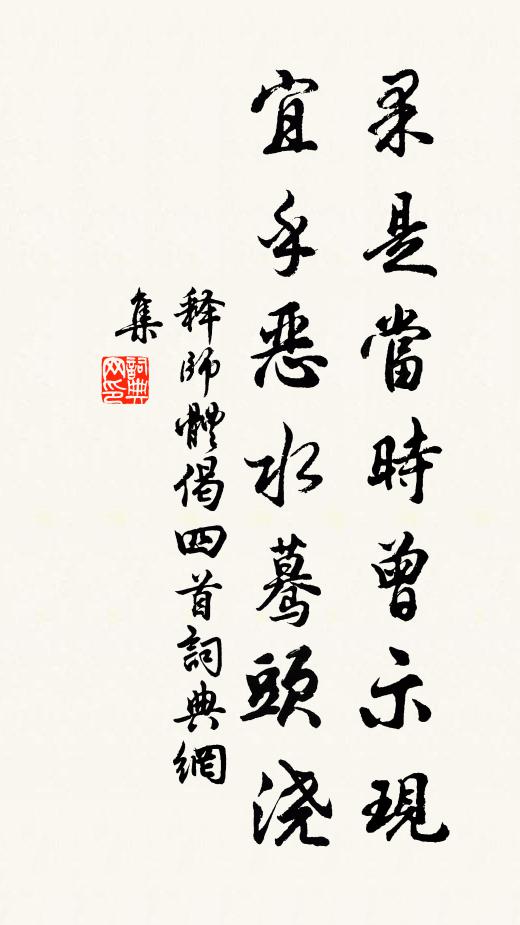 果是當時曾示現
宜乎惡水驀頭浇
释師體偈四首詞典網
集
詞典
网印